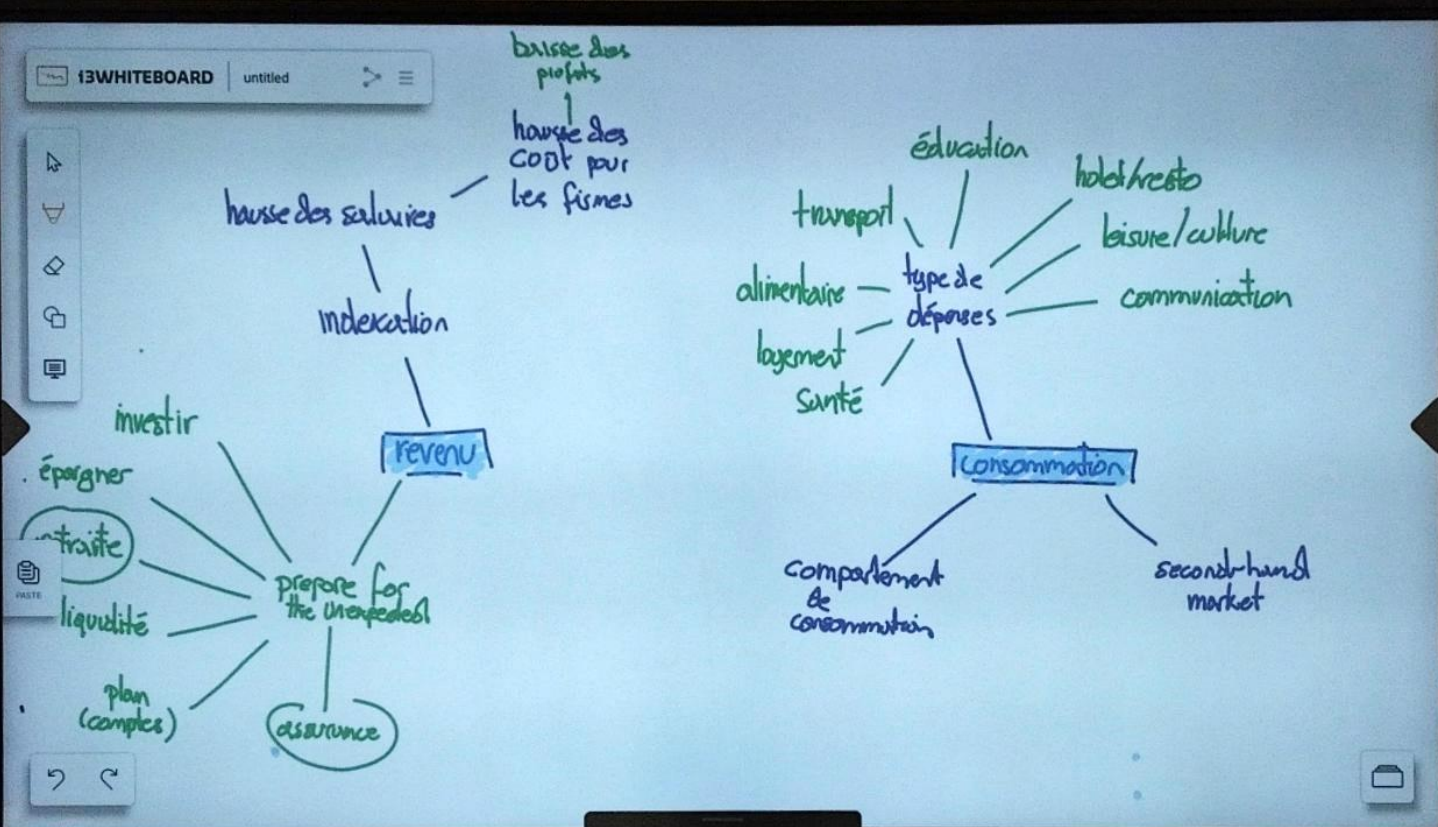 i3WHITEBOARD untitled
baisse des
profits
hausse des
coût pour
les firmes
hausse des salaires
indexation
revenu
investir
épargner
liquidité
plan
(comptes)
assurance
prepare for
the unexpected
PASTE
éducation
transport
hotel/resto
leisure/culture
alimentaire
type de
dépenses
communication
logement
santé
consommation
comportement
de
consommation
second-hand
market